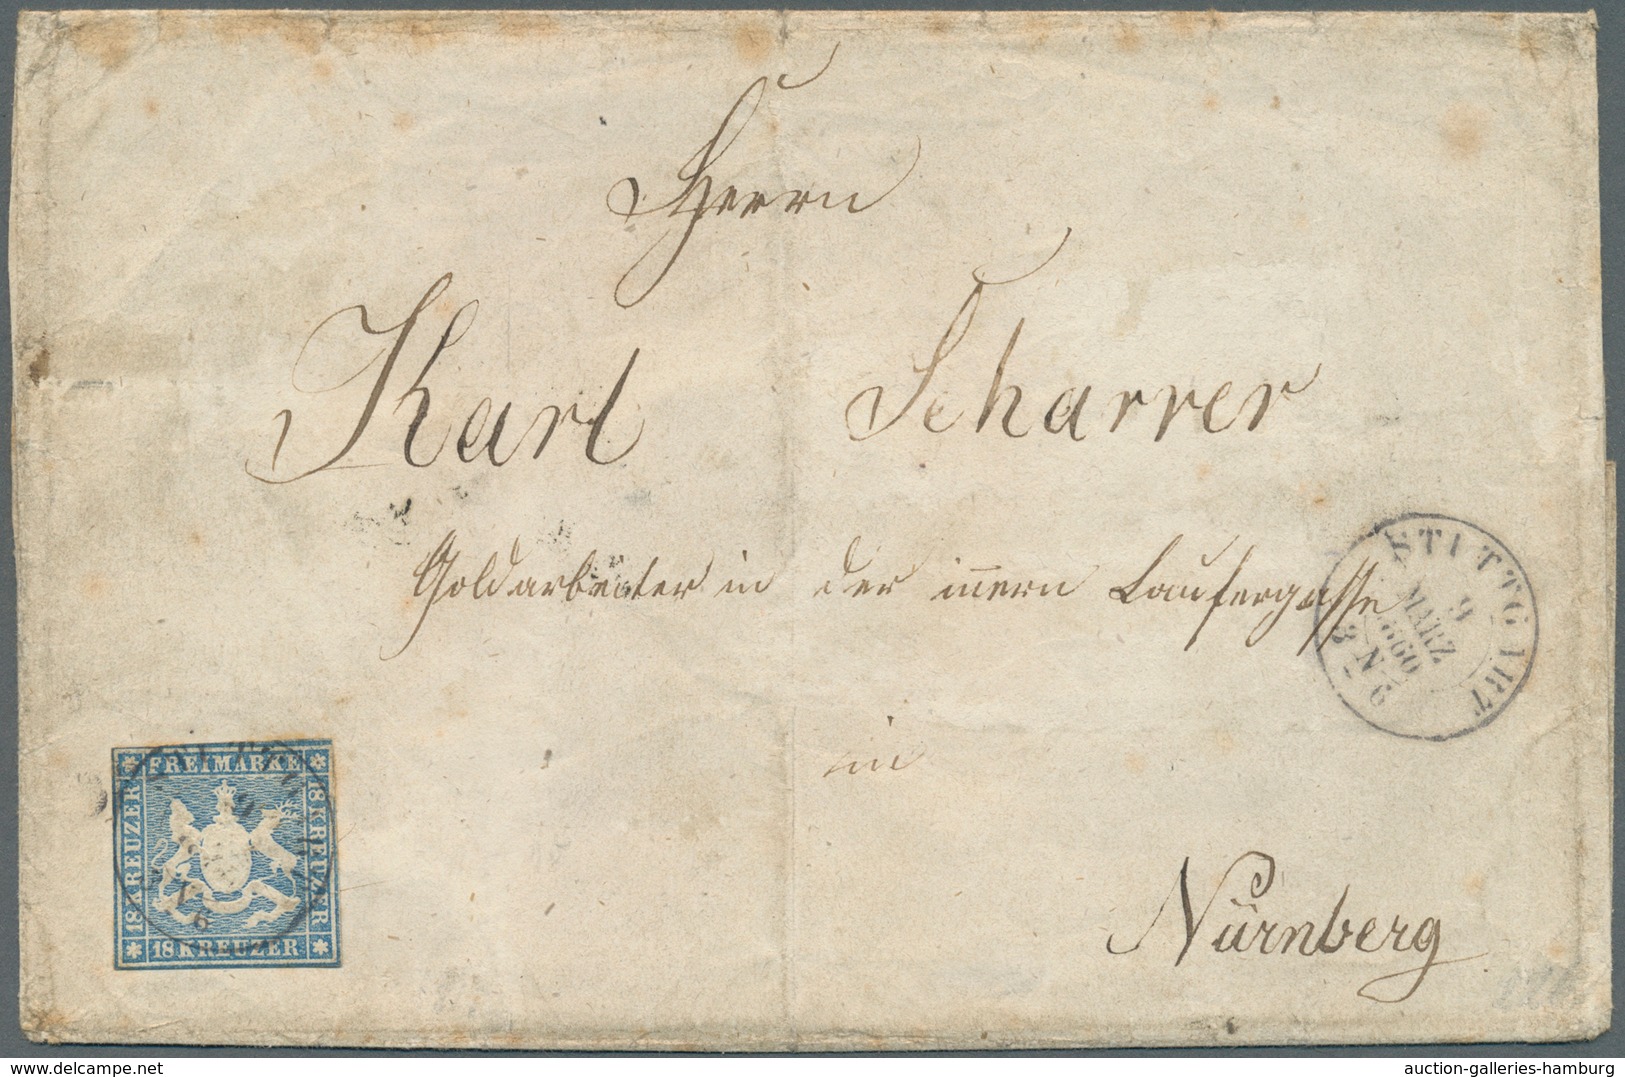 Herrn
Karl Scharrer
Goldarbeiter in der innern Laufergasse
in
Nürnberg
STUTTGART
9
MÄRZ
1860
3 N 6
FREIMARKE
18 KREUZER
18 KREUZER
18 KREUZER
9
N 6
auction-galleries-hamburg
delcampe.net